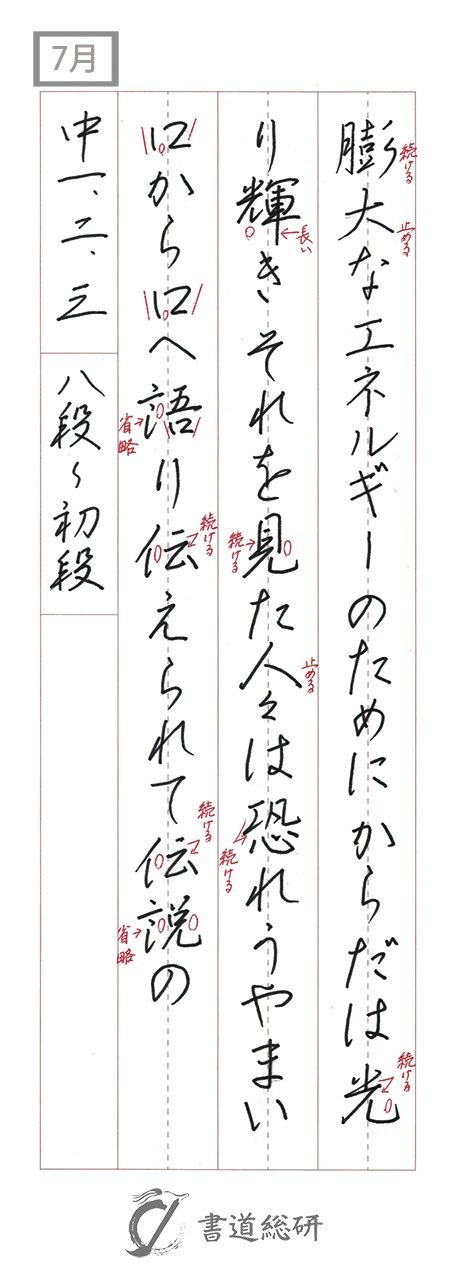 7月
膨大なエネルギーのためにからだは光
り輝きそれを見た人々は恐れうやまい
口から口へ語り伝えられて伝説の
中一、二、三
八段〜初段
続ける
止める
続ける
長い
続ける
止める
続ける
省略
続ける
続ける
省略
書道総研